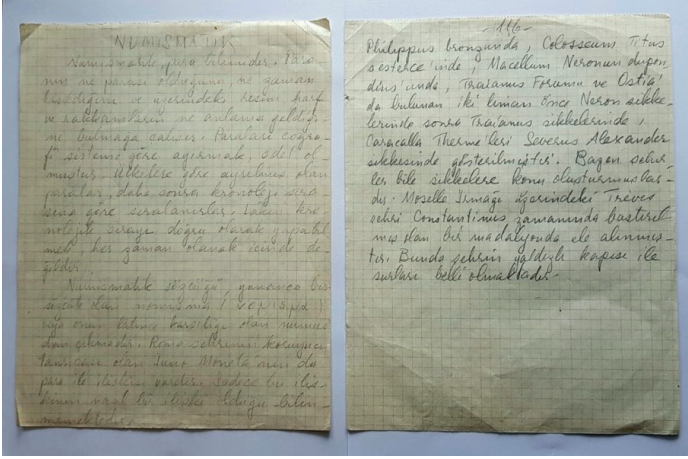 NUMISMATIK
Numismatik, para bilimidir. Para
nın ne parası olduğunu, ne zaman
basıldığını ve üzerindeki resim harf
ve rakkamların ne anlama geldiği
ni bulmaya çalışır. Paraları coğra
fi sisteme göre ayırmak, âdet ol
muştur. Ülkelere göre ayrılmış olan
paralar, daha sonra kronoloji sıra
sına göre sıralanırlar. kro
nolojik sırayı doğru olarak yapabil
mek, her zaman olanak içinde de
ğildir.
Numismatik sözcüğü, yunanca bir
sözcük olan
veya onun latince karşılığı olan nummus
dan gelmedir. Roma şehrinin koruyucu
tanrıçası olan Juno Moneta'nın da
para ile ilişkisi vardır. Sadece bu iliş
kinin nasıl bir ilişki olduğu bilin
memektedir.
-116-
Philippus bronzunda, Colosseum Titus
sesterce'inde, Macellum Neronun dupon
dius'unda, Traianus Forumu ve Ostia'
da bulunan iki liman önce Neron sikke-
lerinde sonra Traianus sikkelerinde,
Caracalla Therme'leri Severus Alexander
sikkesinde gösterilmiştir. Bazen şehir-
ler bile sikkelere konu oluşturmuşlar-
dır. Moselle Irmağı üzerindeki Trèves
şehri Constantinus zamanında bastırıl
mış olan bir madalyonda ele alınmış-
tır. Bunda şehrin yaldızlı kapısı ile
surları belli olmaktadır.